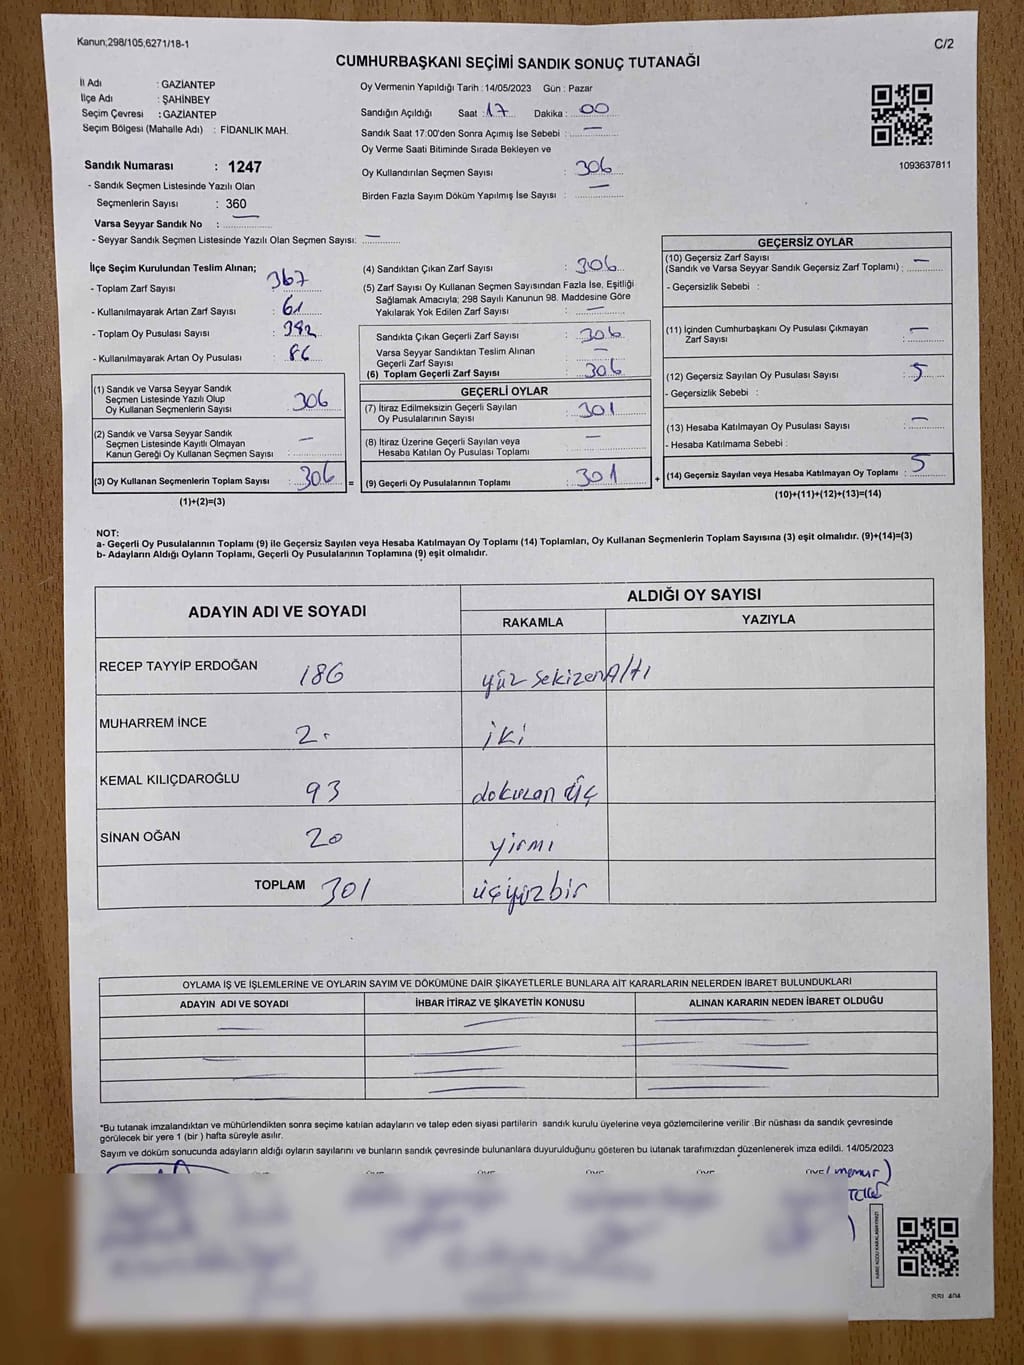 Kanun;298/105,6271/18-1
C/2
CUMHURBAŞKANI SEÇİMİ SANDIK SONUÇ TUTANAĞI
İl Adı : GAZİANTEP
İlçe Adı : ŞAHİNBEY
Seçim Çevresi : GAZİANTEP
Seçim Bölgesi (Mahalle Adı) : FİDANLIK MAH.
Sandık Numarası : 1247
- Sandık Seçmen Listesinde Yazılı Olan
Seçmenlerin Sayısı : 360
Varsa Seyyar Sandık No : —
- Seyyar Sandık Seçmen Listesinde Yazılı Olan Seçmen Sayısı: —
Oy Vermenin Yapıldığı Tarih : 14/05/2023 Gün : Pazar
Sandığın Açıldığı Saat : 17 Dakika : 00
Sandık Saat 17.00'den Sonra Açımış İse Sebebi : —
Oy Verme Saati Bitiminde Sırada Bekleyen ve
Oy Kullandırılan Seçmen Sayısı : 306
Birden Fazla Sayım Döküm Yapılmış İse Sayısı : —
1093637811
İlçe Seçim Kurulundan Teslim Alınan;
- Toplam Zarf Sayısı : 367
- Kullanılmayarak Artan Zarf Sayısı : 61
- Toplam Oy Pusulası Sayısı : 392
- Kullanılmayarak Artan Oy Pusulası : 86
(1) Sandık ve Varsa Seyyar Sandık
Seçmen Listesinde Yazılı Olup
Oy Kullanan Seçmenlerin Sayısı : 306
(2) Sandık ve Varsa Seyyar Sandık
Seçmen Listesinde Kayıtlı Olmayan
Kanun Gereği Oy Kullanan Seçmen Sayısı : —
(3) Oy Kullanan Seçmenlerin Toplam Sayısı : 306 =
(1)+(2)=(3)
(4) Sandıktan Çıkan Zarf Sayısı : 306
(5) Zarf Sayısı Oy Kullanan Seçmen Sayısından Fazla İse, Eşitliği
Sağlamak Amacıyla; 298 Sayılı Kanunun 98. Maddesine Göre
Yakılarak Yok Edilen Zarf Sayısı : —
Sandıkta Çıkan Geçerli Zarf Sayısı : 306
Varsa Seyyar Sandıktan Teslim Alınan
Geçerli Zarf Sayısı : —
(6) Toplam Geçerli Zarf Sayısı : 306
GEÇERLİ OYLAR
(7) İtiraz Edilmeksizin Geçerli Sayılan
Oy Pusulalarının Sayısı : 301
(8) İtiraz Üzerine Geçerli Sayılan veya
Hesaba Katılan Oy Pusulası Toplamı : —
(9) Geçerli Oy Pusulalarının Toplamı : 301 +
GEÇERSİZ OYLAR
(10) Geçersiz Zarf Sayısı
(Sandık ve Varsa Seyyar Sandık Geçersiz Zarf Toplamı) : —
- Geçersizlik Sebebi :
(11) İçinden Cumhurbaşkanı Oy Pusulası Çıkmayan
Zarf Sayısı : —
(12) Geçersiz Sayılan Oy Pusulası Sayısı : 5
- Geçersizlik Sebebi :
(13) Hesaba Katılmayan Oy Pusulası Sayısı : —
- Hesaba Katılmama Sebebi :
(14) Geçersiz Sayılan veya Hesaba Katılmayan Oy Toplamı : 5
(10)+(11)+(12)+(13)=(14)
NOT:
a- Geçerli Oy Pusulalarının Toplamı (9) ile Geçersiz Sayılan veya Hesaba Katılmayan Oy Toplamı (14) Toplamları, Oy Kullanan Seçmenlerin Toplam Sayısına (3) eşit olmalıdır. (9)+(14)=(3)
b- Adayların Aldığı Oyların Toplamı, Geçerli Oy Pusulalarının Toplamına (9) eşit olmalıdır.
ADAYIN ADI VE SOYADI
ALDIĞI OY SAYISI
RAKAMLA YAZIYLA
RECEP TAYYİP ERDOĞAN 186 yüz sekizenAltı
MUHARREM İNCE 2. iki
KEMAL KILIÇDAROĞLU 93 doksan üç
SİNAN OĞAN 20 yirmi
TOPLAM 301 üçyüzbir
OYLAMA İŞ VE İŞLEMLERİNE VE OYLARIN SAYIM VE DÖKÜMÜNE DAİR ŞİKAYETLERLE BUNLARA AİT KARARLARIN NELERDEN İBARET BULUNDUKLARI
ADAYIN ADI VE SOYADI İHBAR İTİRAZ VE ŞİKAYETİN KONUSU ALINAN KARARIN NEDEN İBARET OLDUĞU
*Bu tutanak imzalandıktan ve mühürlendikten sonra seçime katılan adayların ve talep eden siyasi partilerin sandık kurulu üyelerine veya gözlemcilerine verilir .Bir nüshası da sandık çevresinde
görülecek bir yere 1 (bir ) hafta süreyle asılır.
Sayım ve döküm sonucunda adayların aldığı oyların sayılarını ve bunların sandık çevresinde bulunanlara duyurulduğunu gösteren bu tutanak tarafımızdan düzenlenerek imza edildi. 14/05/2023
memur)